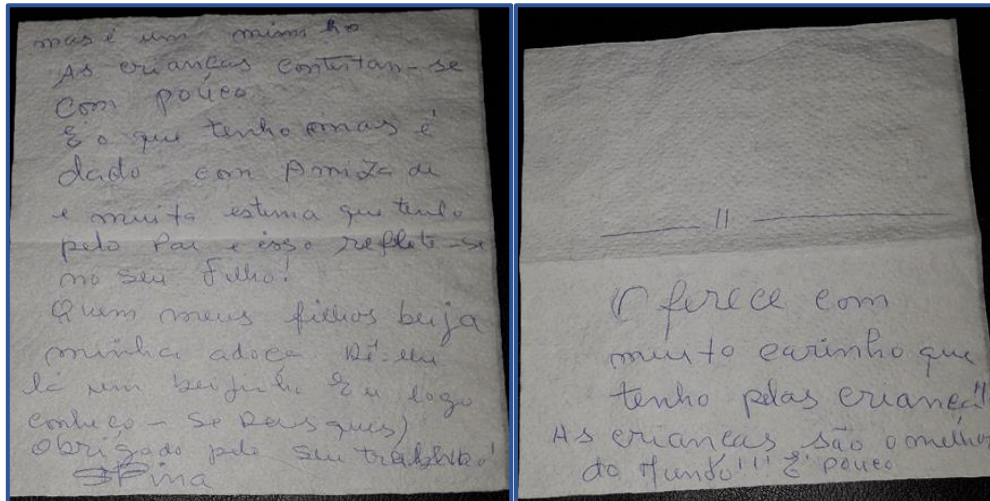 mas é um miminho
As crianças contentan-se
Com pouco
E o que tenho mas é
dado com Amizade
e muita estema que tenho
pelo Pai e isso reflete-se
no seu Filho!
Quem meus filhos beija
minha adoça Dê-lhe
lá um beijinho Eu logo
conheço - Se Deus
Obrigado pelo seu trabalho!
Pina
11
Oferece com
muito carinho que
tenho pelas criança!!
As crianças são o melhor
do Mundo!!! É pouco